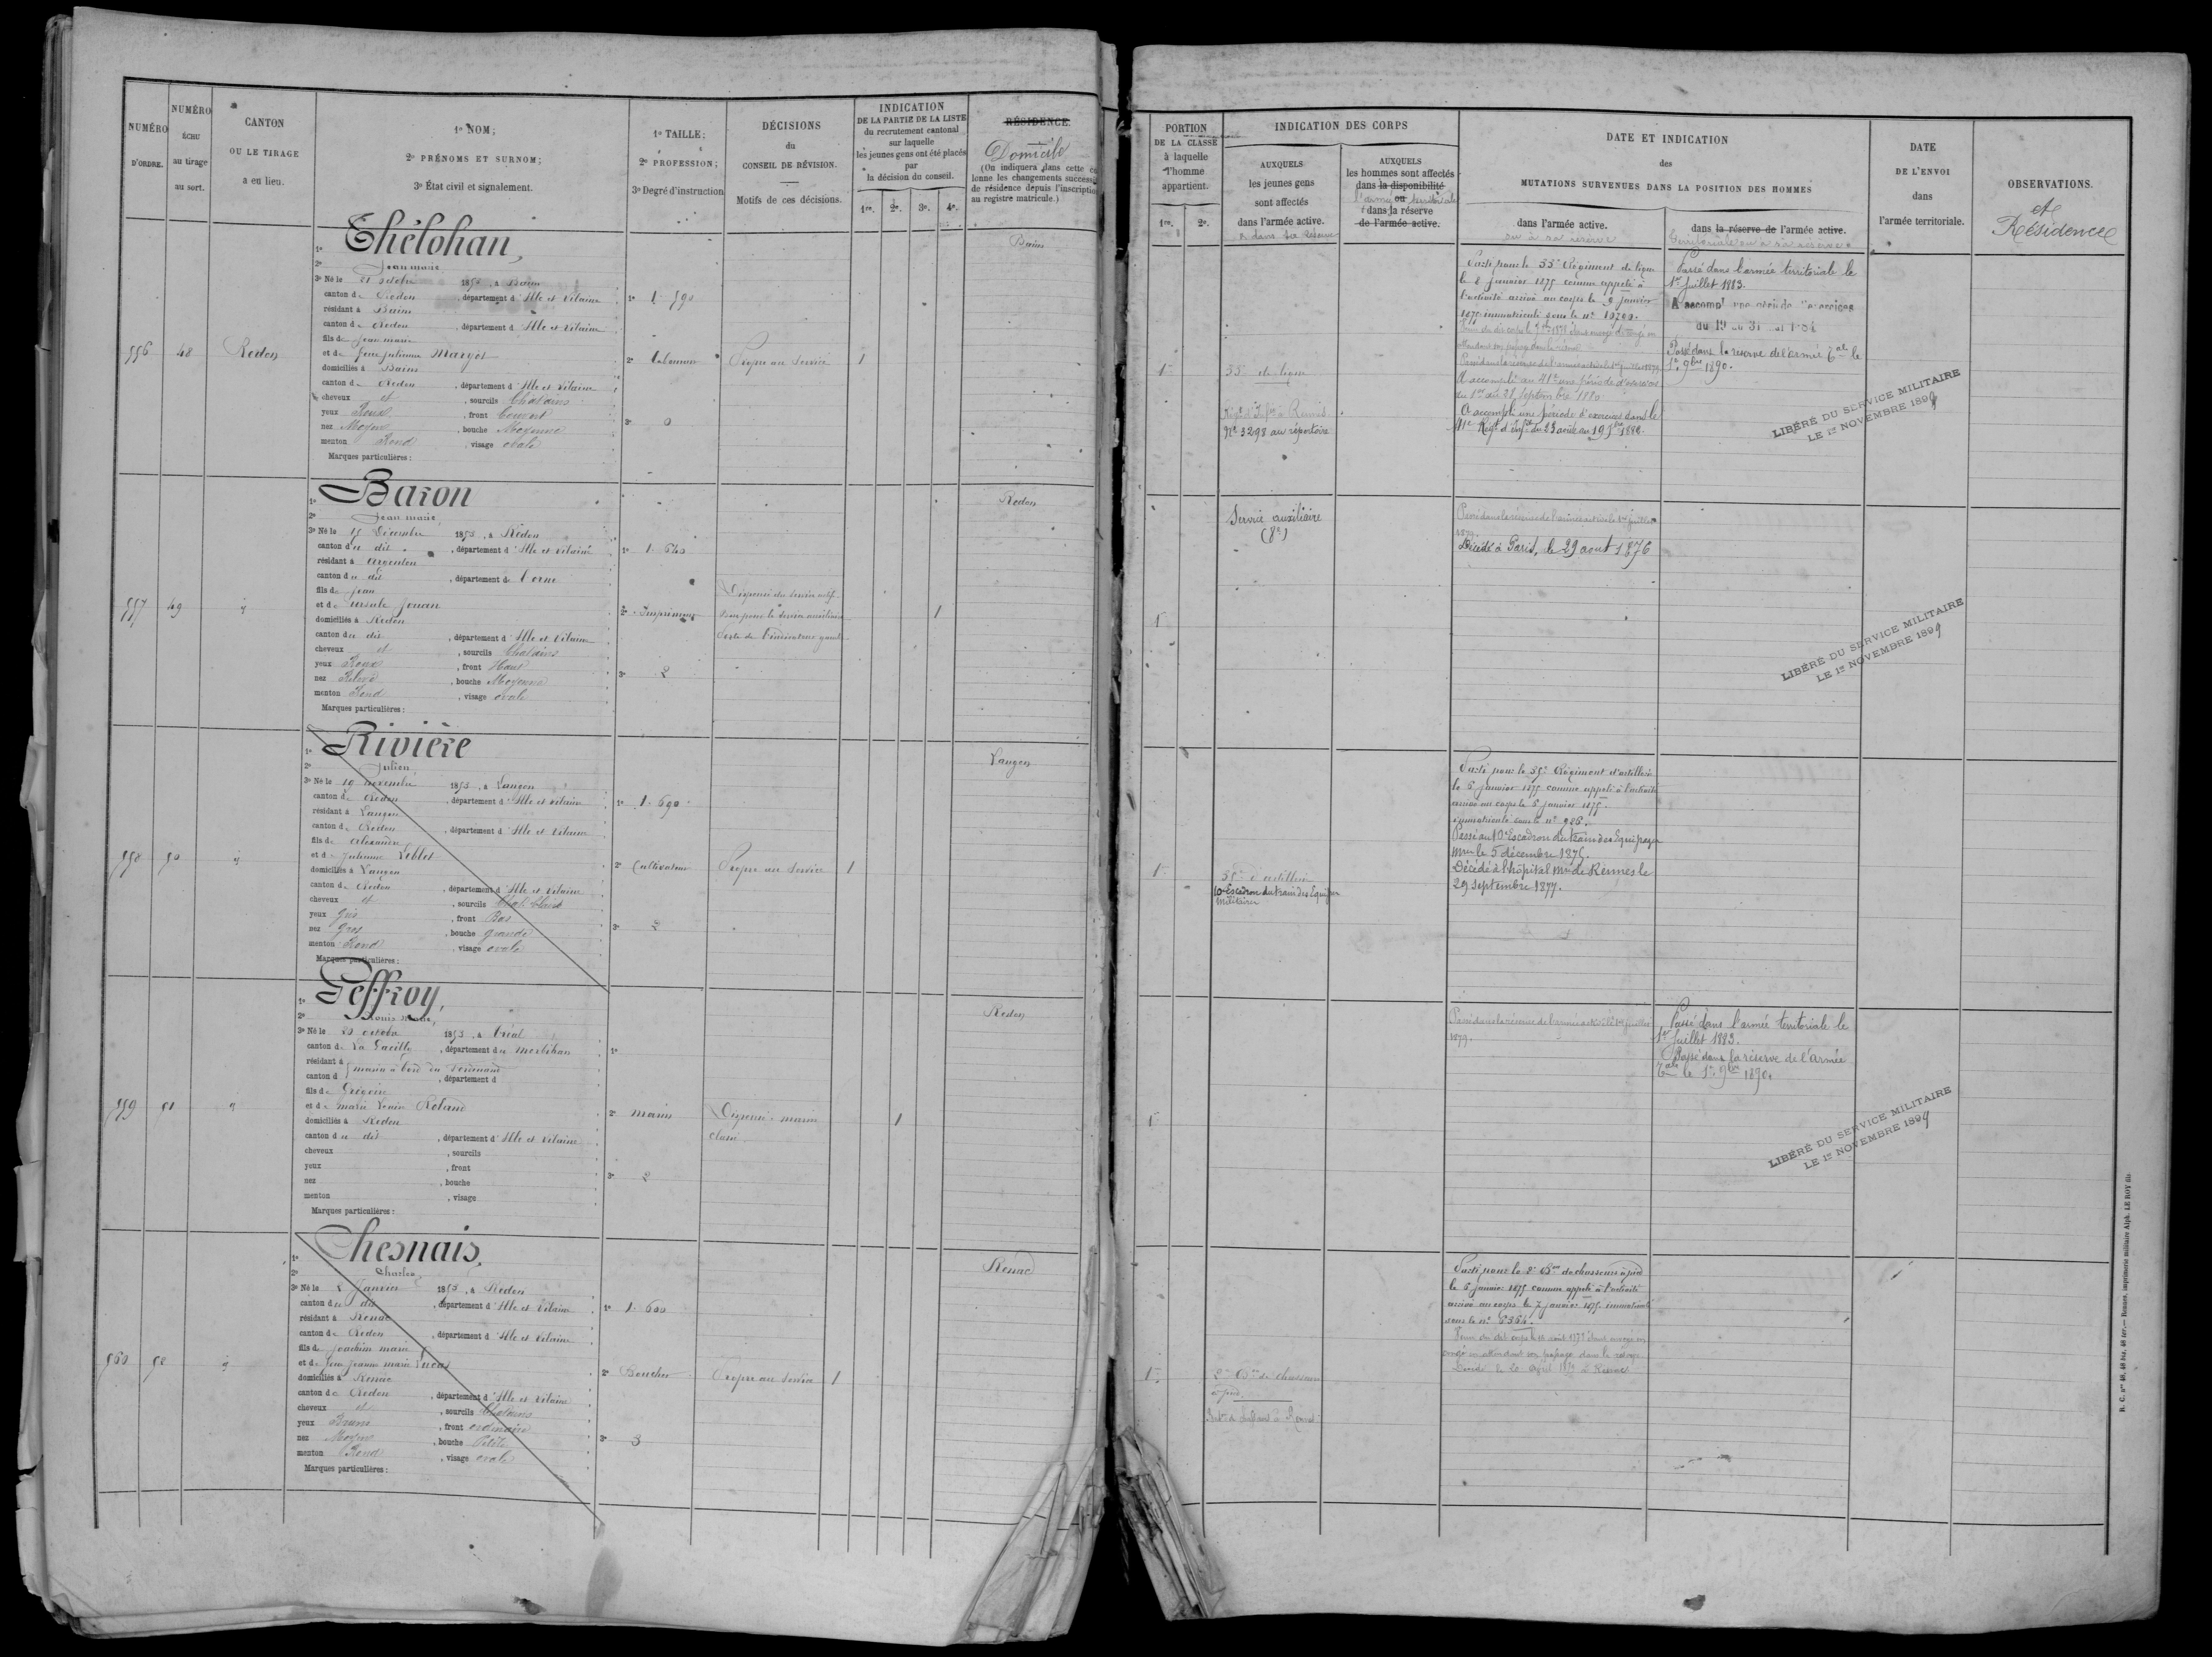 NUMÉRO D'ORDRE.
NUMÉRO ÉCHU au tirage au sort.
CANTON OU LE TIRAGE a eu lieu.
1º NOM;
2º PRÉNOMS ET SURNOM;
3º État civil et signalement.
1º TAILLE;
2º PROFESSION;
3º Degré d'instruction
DÉCISIONS
du
CONSEIL DE RÉVISION.
Motifs de ces décisions.
INDICATION
DE LA PARTIE DE LA LISTE
du recrutement cantonal
sur laquelle
les jeunes gens ont été placés
par
la décision du conseil.
1re. 2e. 3e. 4e.
RÉSIDENCE.
Domicile
(On indiquera dans cette co
lonne les changements successifs
de résidence depuis l'inscription
au registre matricule.)
556
48
Redon
1º Thélohan,
2º Jean marie
3º Né le 21 octobre 1853, à Bain
canton de Redon, département d'Ille et Vilaine
résidant à Bains
canton de Redon, département d'Ille et Vilaine
fils de Jean marie
et de Julienne Margot
domiciliés à Bains
canton de Redon, département d'Ille et Vilaine
cheveux et, sourcils Chatains
yeux Roux, front Couvert
nez Moyen, bouche Moyenne
menton Rond, visage ovale
Marques particulières:
1º 1. 590
2º Laboureur
3º 0
Propre au Service
1
Bains
557
49
1º Baron
2º Jean marie
3º Né le 15 Décembre 1853, à Redon
canton du dit, département d'Ille et Vilaine
résidant à argenton
canton du dit, département de l'orne
fils de Jean
et de ursule Jouan
domiciliés à Redon
canton du dit, département d'Ille et Vilaine
cheveux et, sourcils Chatains
yeux Roux, front Haut
nez Relevé, bouche Moyenne
menton Rond, visage ovale
Marques particulières:
1º 1. 640
2º Imprimeur
3º 2
Dispensé du service actif
bon pour le service auxiliaire
1
Redon
558
50
1º Rivière
2º Julien
3º Né le 19 novembre 1853, à Langon
canton de Redon, département d'Ille et Vilaine
résidant à Langon
canton de Redon, département d'Ille et Vilaine
fils de Alexandre
et de Julienne Leblet
domiciliés à Langon
canton de Redon, département d'Ille et Vilaine
cheveux et, sourcils Chat. Clairs
yeux Gris, front Bas
nez Gros, bouche grande
menton Rond, visage ovale
Marques particulières:
1º 1. 690
2º Cultivateur
3º 2
Propre au Service
1
Langon
559
51
1º Geffroy,
2º Louis Marie,
3º Né le 29 octobre 1853, à Tréal
canton de La Gacilly, département du Morbihan
résidant à marin à bord du
canton d, département d
fils de Grégoire
et de marie Louise Roland
domiciliés à Redon
canton du dit, département d'Ille et Vilaine
cheveux, sourcils
yeux, front
nez, bouche
menton, visage
Marques particulières:
1º
2º marin
3º 2
Dispensé marin
classé.
1
Redon
560
52
1º Chesnais,
2º Charles
3º Né le 2 Janvier 1853, à Redon
canton du dit, département d'Ille et Vilaine
résidant à Renac
canton de Redon, département d'Ille et Vilaine
fils de Joachim marie
et de Jeanne marie Lucas
domiciliés à Renac
canton de Redon, département d'Ille et Vilaine
cheveux et, sourcils Chatains
yeux Bruns, front ordinaire
nez Moyen, bouche Petite
menton Rond, visage ovale
Marques particulières:
1º 1. 600
2º Boucher
3º 3
Propre au Service
1
Renac
PORTION
DE LA CLASSE
à laquelle
l'homme
appartient.
1re. 2e.
INDICATION DES CORPS
AUXQUELS
les jeunes gens
sont affectés
dans l'armée active.
et dans la Réserve
AUXQUELS
les hommes sont affectés
dans la disponibilité
ou
l'armée territoriale
dans la réserve
de l'armée active.
DATE ET INDICATION
des
MUTATIONS SURVENUES DANS LA POSITION DES HOMMES
dans l'armée active.
ou à sa réserve
dans la réserve de l'armée active.
Territoriale ou à sa réserve
DATE
DE L'ENVOI
dans
l'armée territoriale.
OBSERVATIONS.
et
Résidence
1
35e de ligne
Régt d'Infie à Rennes
No 3298 au répertoire
Parti pour le 35e Régiment de ligne
le 8 janvier 1875 comme appelé à
l'activité arrivé au corps le 9 janvier
1875 immatriculé sous le no 10700.
Passé dans la réserve de l'armée active le 1er juillet 1879
A accompli au 41e une période d'exercices
du 1er au 28 septembre 1880
A accompli une période d'exercices dans le
41e Régt d'Infie du 23 août au 19 7bre 1882.
Passé dans l'armée territoriale le
1er Juillet 1883.
A accompli une période d'exercices
du 19 au 31
Passé dans la réserve de l'armée Tale le
1er 9bre 1890.
LIBÉRÉ DU SERVICE MILITAIRE
LE 1er NOVEMBRE 1899
1
Service auxiliaire
Passé dans la réserve de l'armée active le 1er juillet
1879.
Décédé à Paris, le 29 aout 1876
LIBÉRÉ DU SERVICE MILITAIRE
LE 1er NOVEMBRE 1899
1
35e d'artillerie
10e Escadron du train des Equipages
Militaires
Parti pour le 35e Régiment d'artillerie
le 6 janvier 1875 comme appelé à l'activité
arrivé au corps le 8 janvier 1875.
immatriculé sous le no 986.
Passé au 10e Escadron du train des Equipages
Mres le 5 décembre 1875.
Décédé à l'hôpital Mre de Rennes le
29 septembre 1877.
1
Passé dans la réserve de l'armée active le 1er juillet
1879.
Passé dans l'armée territoriale le
1er Juillet 1883.
Passé dans la réserve de l'armée
Tale le 1er 9bre 1890.
LIBÉRÉ DU SERVICE MILITAIRE
LE 1er NOVEMBRE 1899
1
2e Bon de chasseurs
à pied.
Parti pour le 2e Bon de chasseurs à pied
le 6 janvier 1875 comme appelé à l'activité
arrivé au corps le 7 janvier 1875 immatriculé
sous le no 6364.
congé en attendant son passage dans la réserve
Décédé le 20 avril 1879 à Renac
R. C. nos 48, 48 bis, 48 ter. — Rennes, imprimerie militaire Alph. LE ROY fils